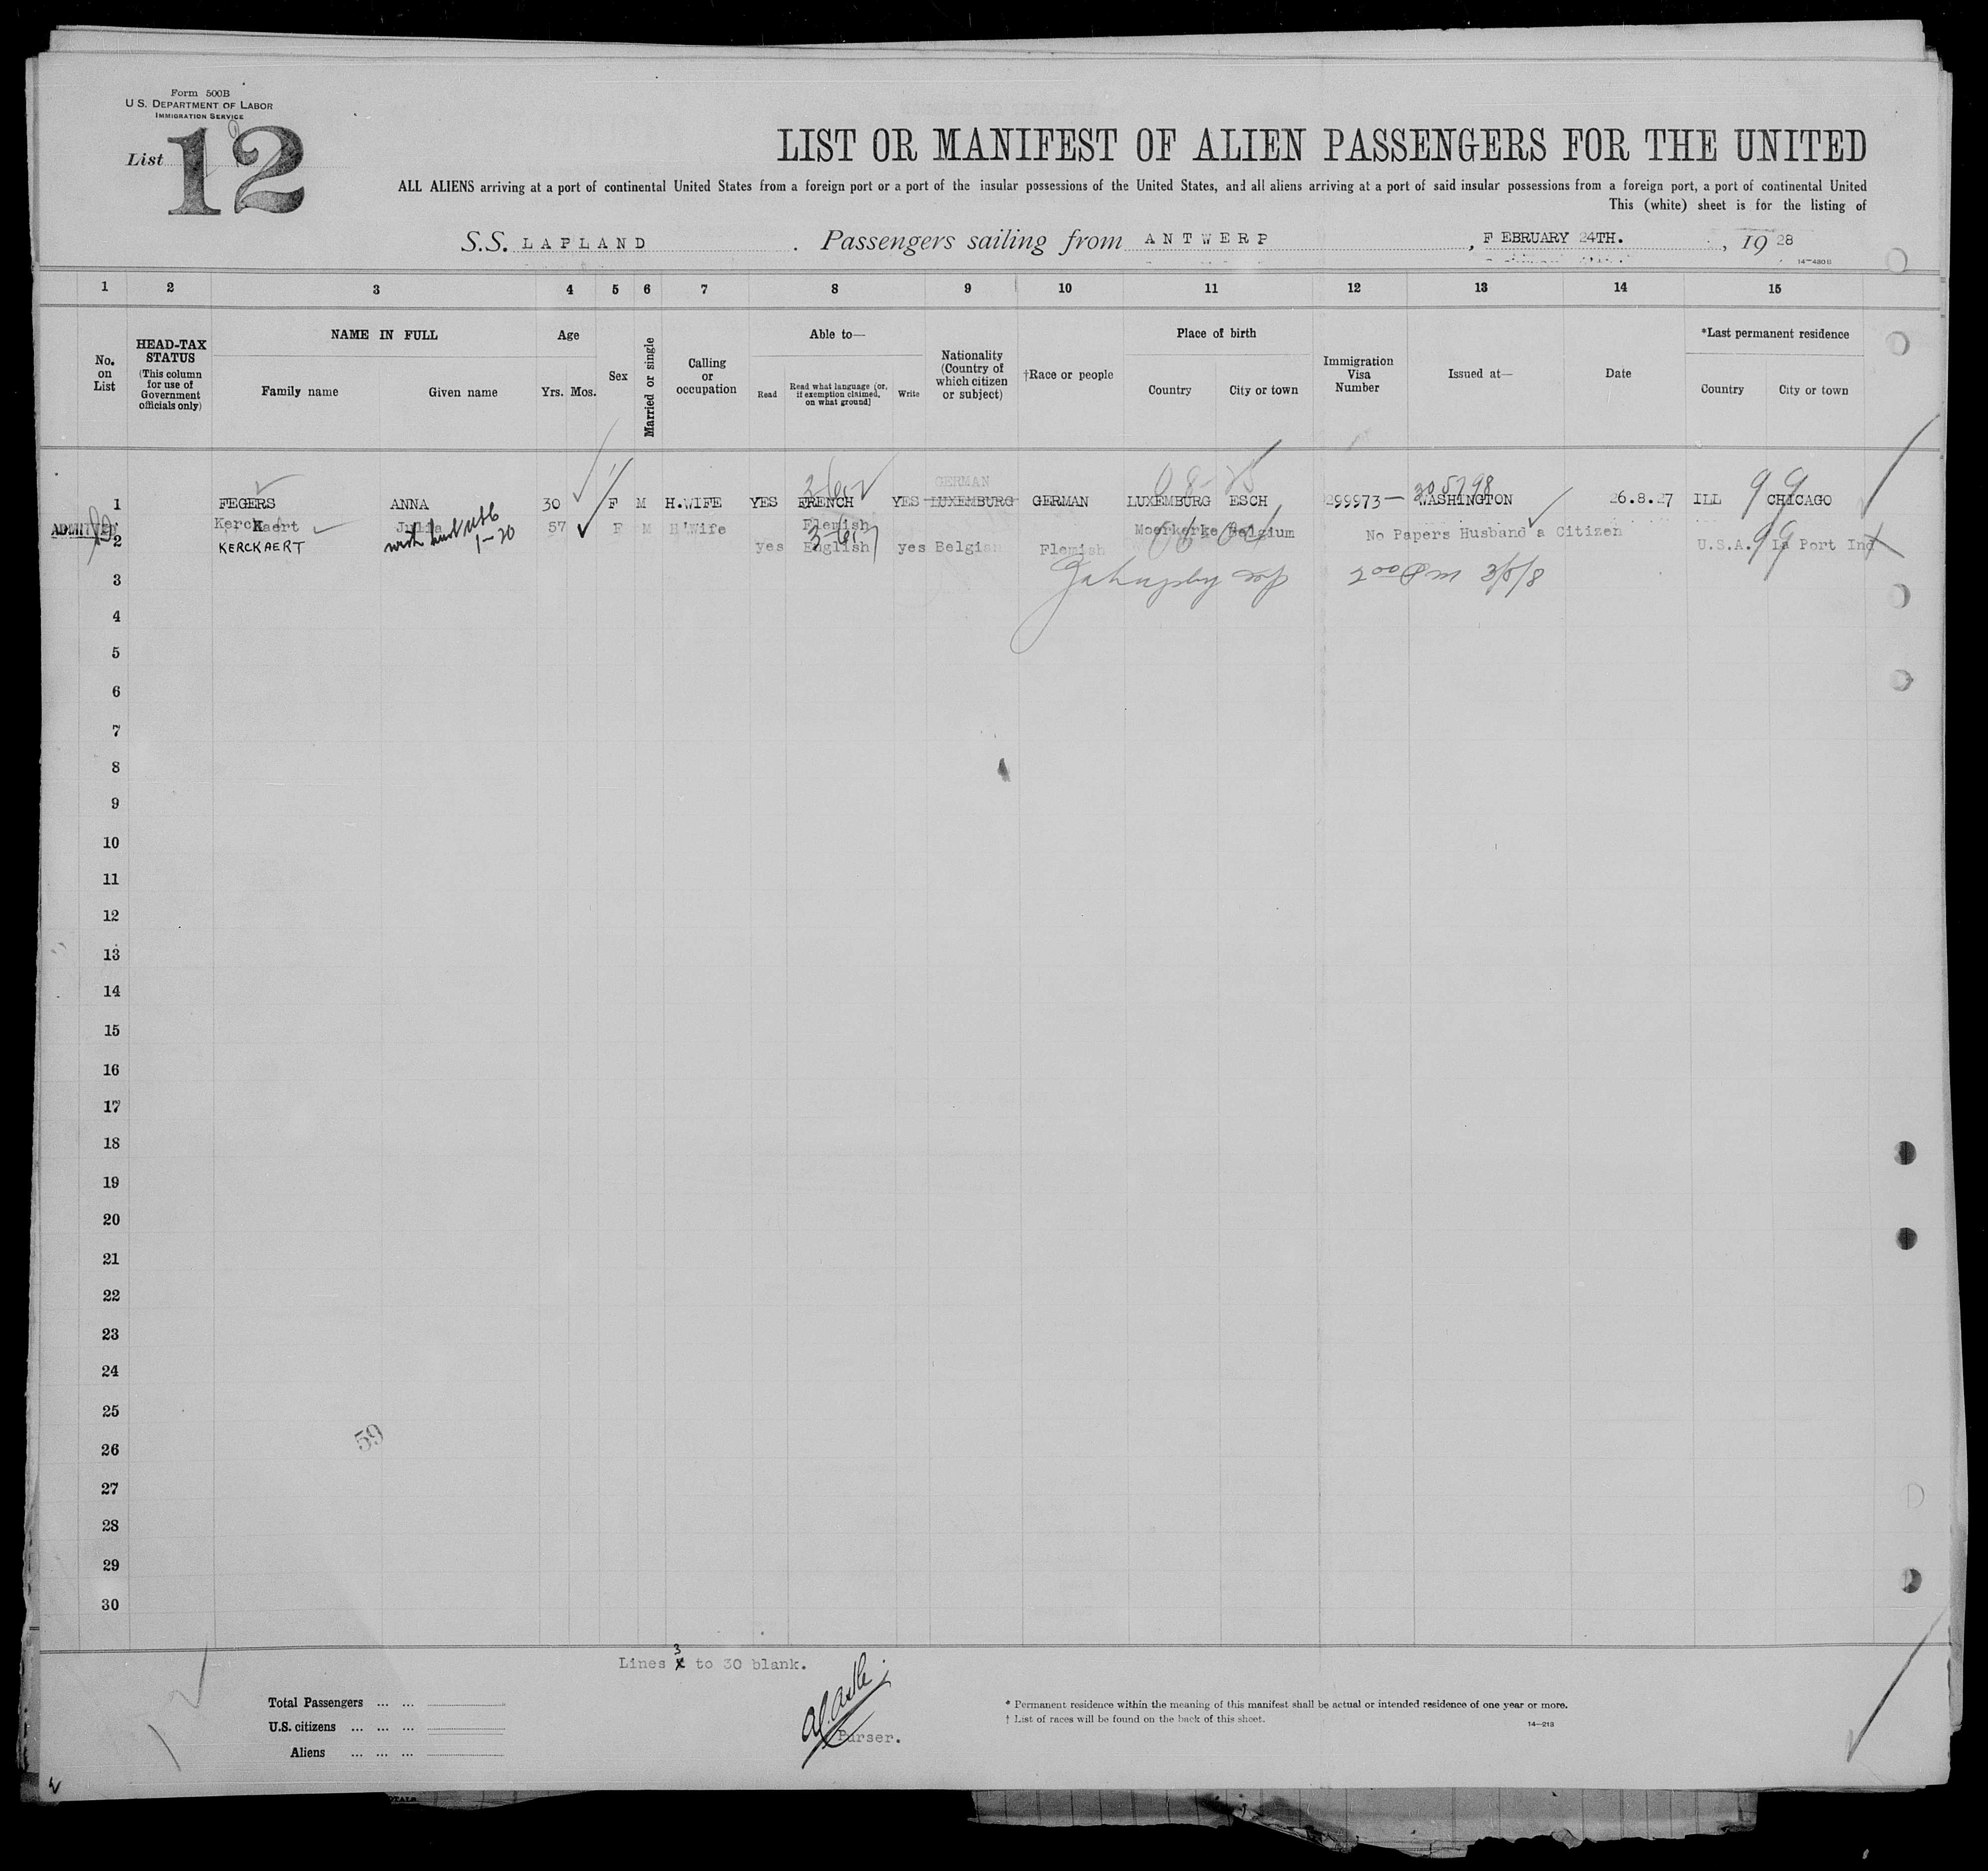 Form 500B
U.S. DEPARTMENT OF LABOR
IMMIGRATION SERVICE
List 12
LIST OR MANIFEST OF ALIEN PASSENGERS FOR THE UNITED
ALL ALIENS arriving at a port of continental United States from a foreign port or a port of the insular possessions of the United States, and all aliens arriving at a port of said insular possessions from a foreign port, a port of continental United
This (white) sheet is for the listing of
S.S. LAPLAND . Passengers sailing from ANTWERP , FEBRUARY 24TH. , 1928
14-480B
1 2 3 4 5 6 7 8 9 10 11 12 13 14 15
No. on List
HEAD-TAX STATUS (This column for use of Government officials only)
NAME IN FULL
Family name Given name
Age
Yrs. Mos.
Sex
Married or single
Calling or occupation
Able to—
Read Read what language (or, if exemption claimed, on what ground) Write
Nationality (Country of which citizen or subject)
†Race or people
Place of birth
Country City or town
Immigration Visa Number
Issued at—
Date
*Last permanent residence
Country City or town
GERMAN 305798
1 FEGERS ANNA 30 F M H.WIFE YES FRENCH YES LUXEMBURG GERMAN LUXEMBURG ESCH 299973— WASHINGTON 26.8.27 ILL 99 CHICAGO
ADMITTED Kerckaert Julia 57 F M H'Wife Flemish Moerkerke Belgium No Papers Husband a Citizen
2 KERCKAERT 1-20 yes English yes Belgian Flemish U.S.A. 99 La Port Ind
3
4
5
6
7
8
9
10
11
12
13
14
15
16
17
18
19
20
21
22
23
24
25
59
26
27
28
29
30
Lines 3 to 30 blank.
Total Passengers ... ...
U.S. citizens ... ... ...
Aliens ... ... ...
Purser.
* Permanent residence within the meaning of this manifest shall be actual or intended residence of one year or more.
† List of races will be found on the back of this sheet.
14-218